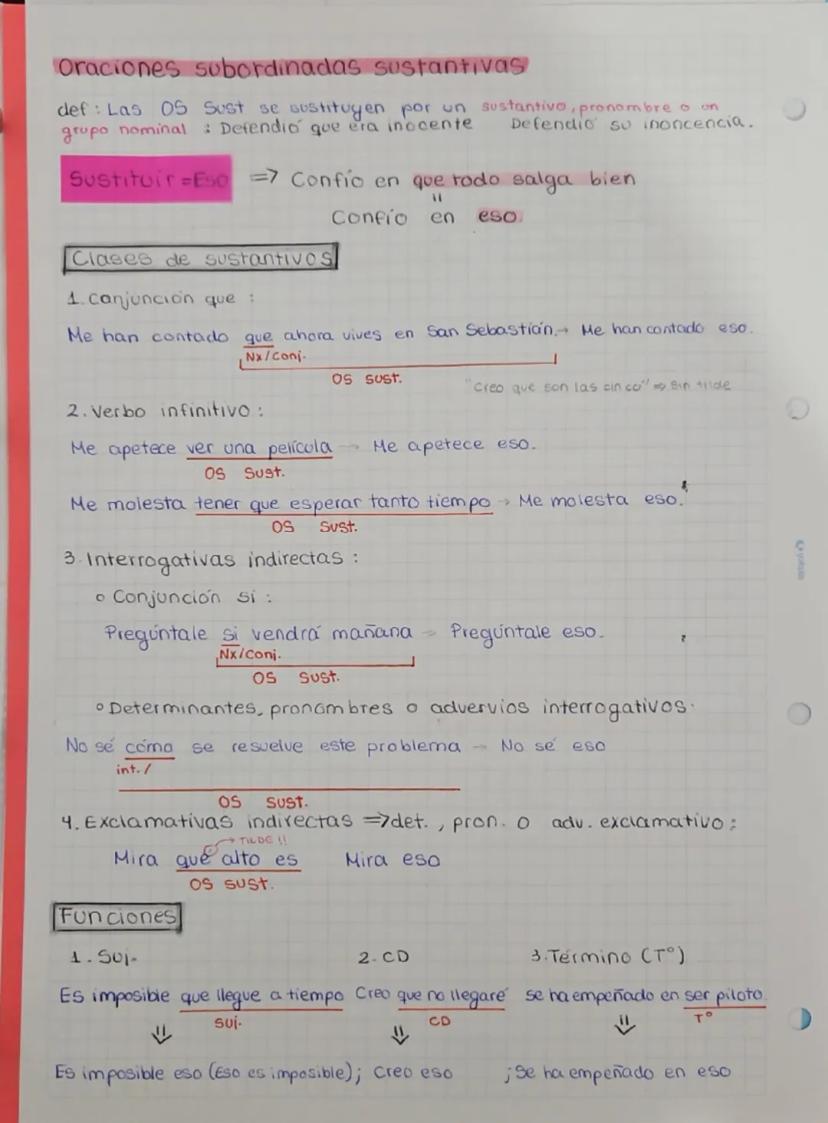 Oraciones subordinadas sustantivas
def: Las OS Sust se sustituyen por un sustantivo, pronombre o un
grupo nominal : Defendió que era inocente Defendió su inoncencia.
Sustituir = Eso => Confío en que todo salga bien
"
Confío en eso.
Clases de sustantivos
1. Conjunción que :
Me han contado que ahora vives en San Sebastián.→ Me han contado eso.
Nx/Conj.
OS Sust.
"Creo que son las cinco" => sin tilde
2. Verbo infinitivo :
Me apetece ver una película → Me apetece eso.
OS Sust.
Me molesta tener que esperar tanto tiempo → Me molesta eso.
OS Sust.
3. Interrogativas indirectas :
o Conjunción si :
Pregúntale si vendrá mañana → Pregúntale eso.
Nx/Conj.
OS Sust.
o Determinantes, pronombres o advervios interrogativos.
No sé cómo se resuelve este problema → No sé eso
int./
OS Sust.
4. Exclamativas indirectas => det., pron. o adv. exclamativo :
→ TILDE !!
Mira qué alto es Mira eso
OS sust.
Funciones
1. Suj. 2. CD 3. Término (Tº)
Es imposible que llegue a tiempo Creo que no llegaré se ha empeñado en ser piloto.
Suj. CD Tº
⇓ ⇓ ⇓
Es imposible eso (Eso es imposible); Creo eso ; Se ha empeñado en eso